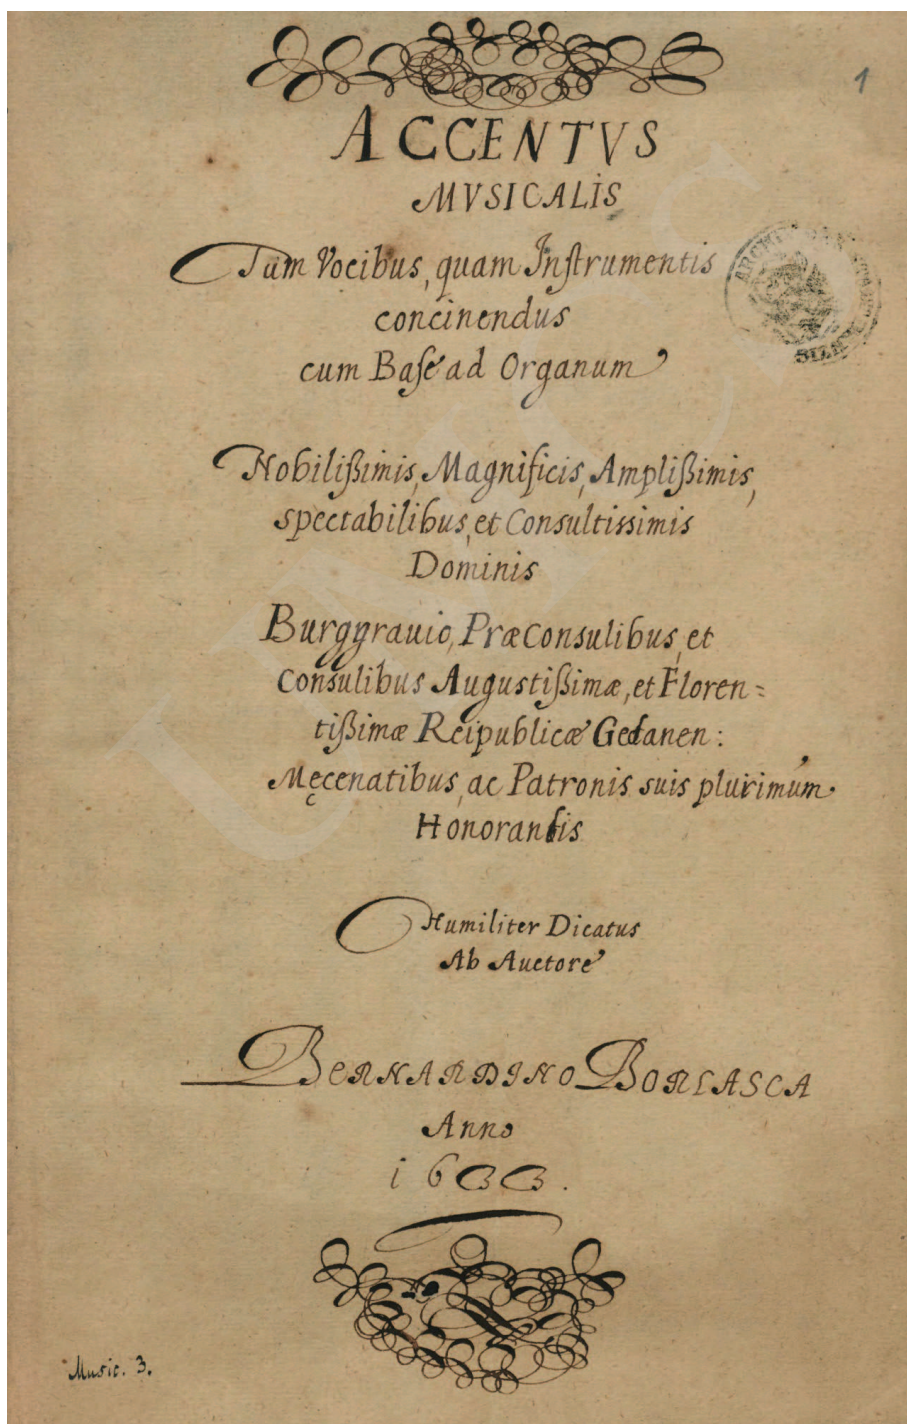 1
ACCENTVS
MVSICALIS
Tam Vocibus, quam Inſtrumentis
concinendus
cum Baſe ad Organum
Nobilißimis, Magnificis, Amplißimis,
spectabilibus, et Consultissimis
Dominis
Burggrauio, PræConsulibus, et
Consulibus Augustißimæ, et Floren=
tißimæ Reipublicæ Gedanen:
Męcenatibus, ac Patronis suis plurimùm
Honorandis
Humiliter Dicatus
Ab Auctore
BERNARDINO BORLASCA
Anno
1633.
Music. 3.